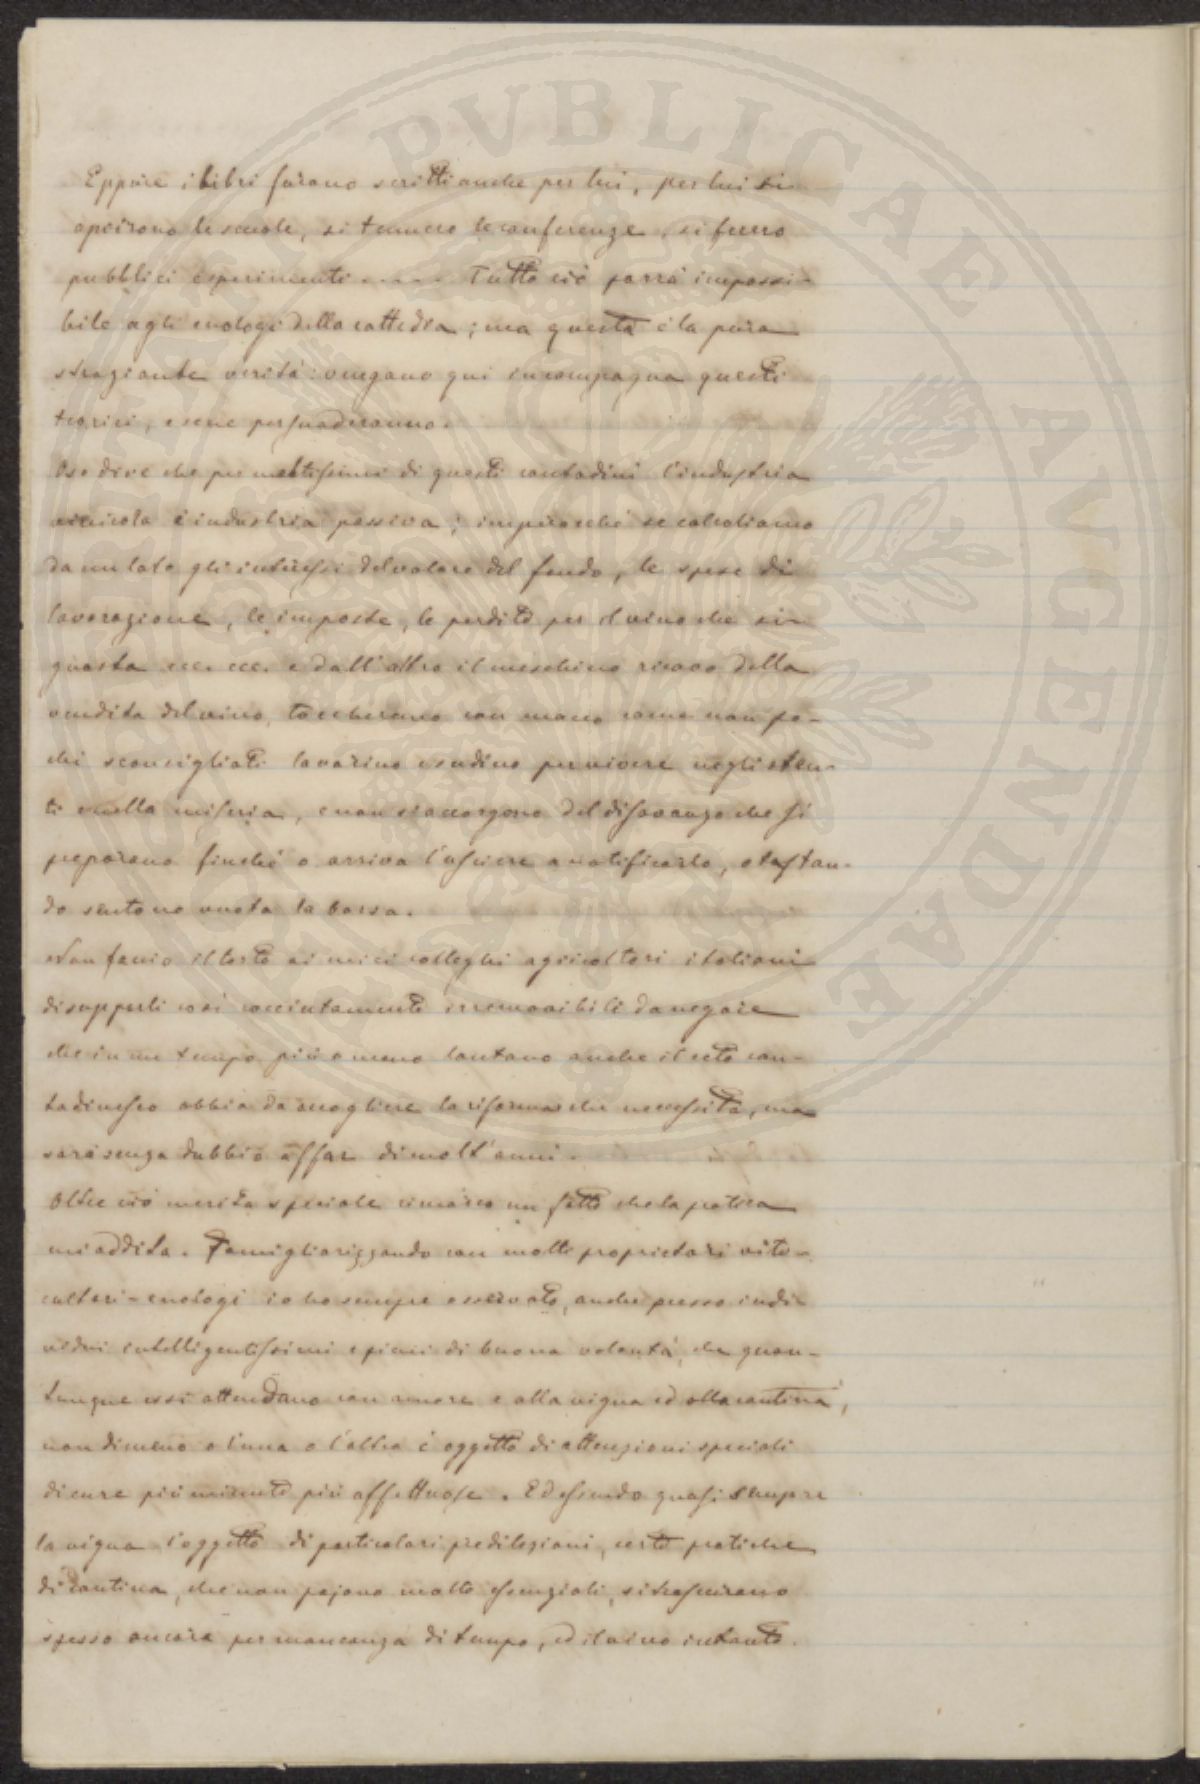 PROSPERITATI PVBLICAE AVGENDAE
Eppure i libri furono scritti anche per lui, per lui si
aprirono le scuole, si tennero le conferenze, si fecero
pubblici esperimenti..... Tutto ciò parrà impossi-
bile agli enologi della cattedra; ma questa è la pura
straziante verità: vengano qui in campagna questi
teorici, e se ne persuaderanno.
Oso dire che per moltissimi di questi contadini l'industria
vinicola è industria passiva; imperocché se calcoliamo
da un lato gli interessi del valore del fondo, le spese di
lavorazione, le imposte, le perdite per il vino che si
guasta ecc. ecc. e dall'altro il meschino ricavo della
vendita del vino, toccheremo con mano come non po-
chi sconsigliati lavorino e sudino per vivere negli sten-
ti e nella miseria, e non si accorgono del disavanzo che si
preparano finché o arriva l'usciere a notificarlo, o tastan-
do sentono vuota la borsa.
Non faccio il torto ai miei colleghi agricoltori italiani
di supporli così cocciutamente irremovibili da negare
che in un tempo più o meno lontano anche il ceto con-
tadinesco abbia da accogliere la riforma che necessita, ma
sarà senza dubbio affar di molt'anni.
Oltre ciò merita speciale rimarco un fatto che la pratica
mi addita. Famigliarizzando con molti proprietari viti-
cultori-enologi io ho sempre osservato, anche presso indi-
vidui intelligentissimi e pieni di buona volontà, che quan-
tunque essi attendano con amore e alla vigna ed alla cantina,
non dimeno o l'una o l'altra è oggetto di attenzioni speciali
di cure più minute più affettuose. Ed essendo quasi sempre
la vigna l'oggetto di particolari predilezioni, certe pratiche
di cantina, che non pajono molto essenziali, si trascurano
spesso ancora per mancanza di tempo, ed il vino intanto